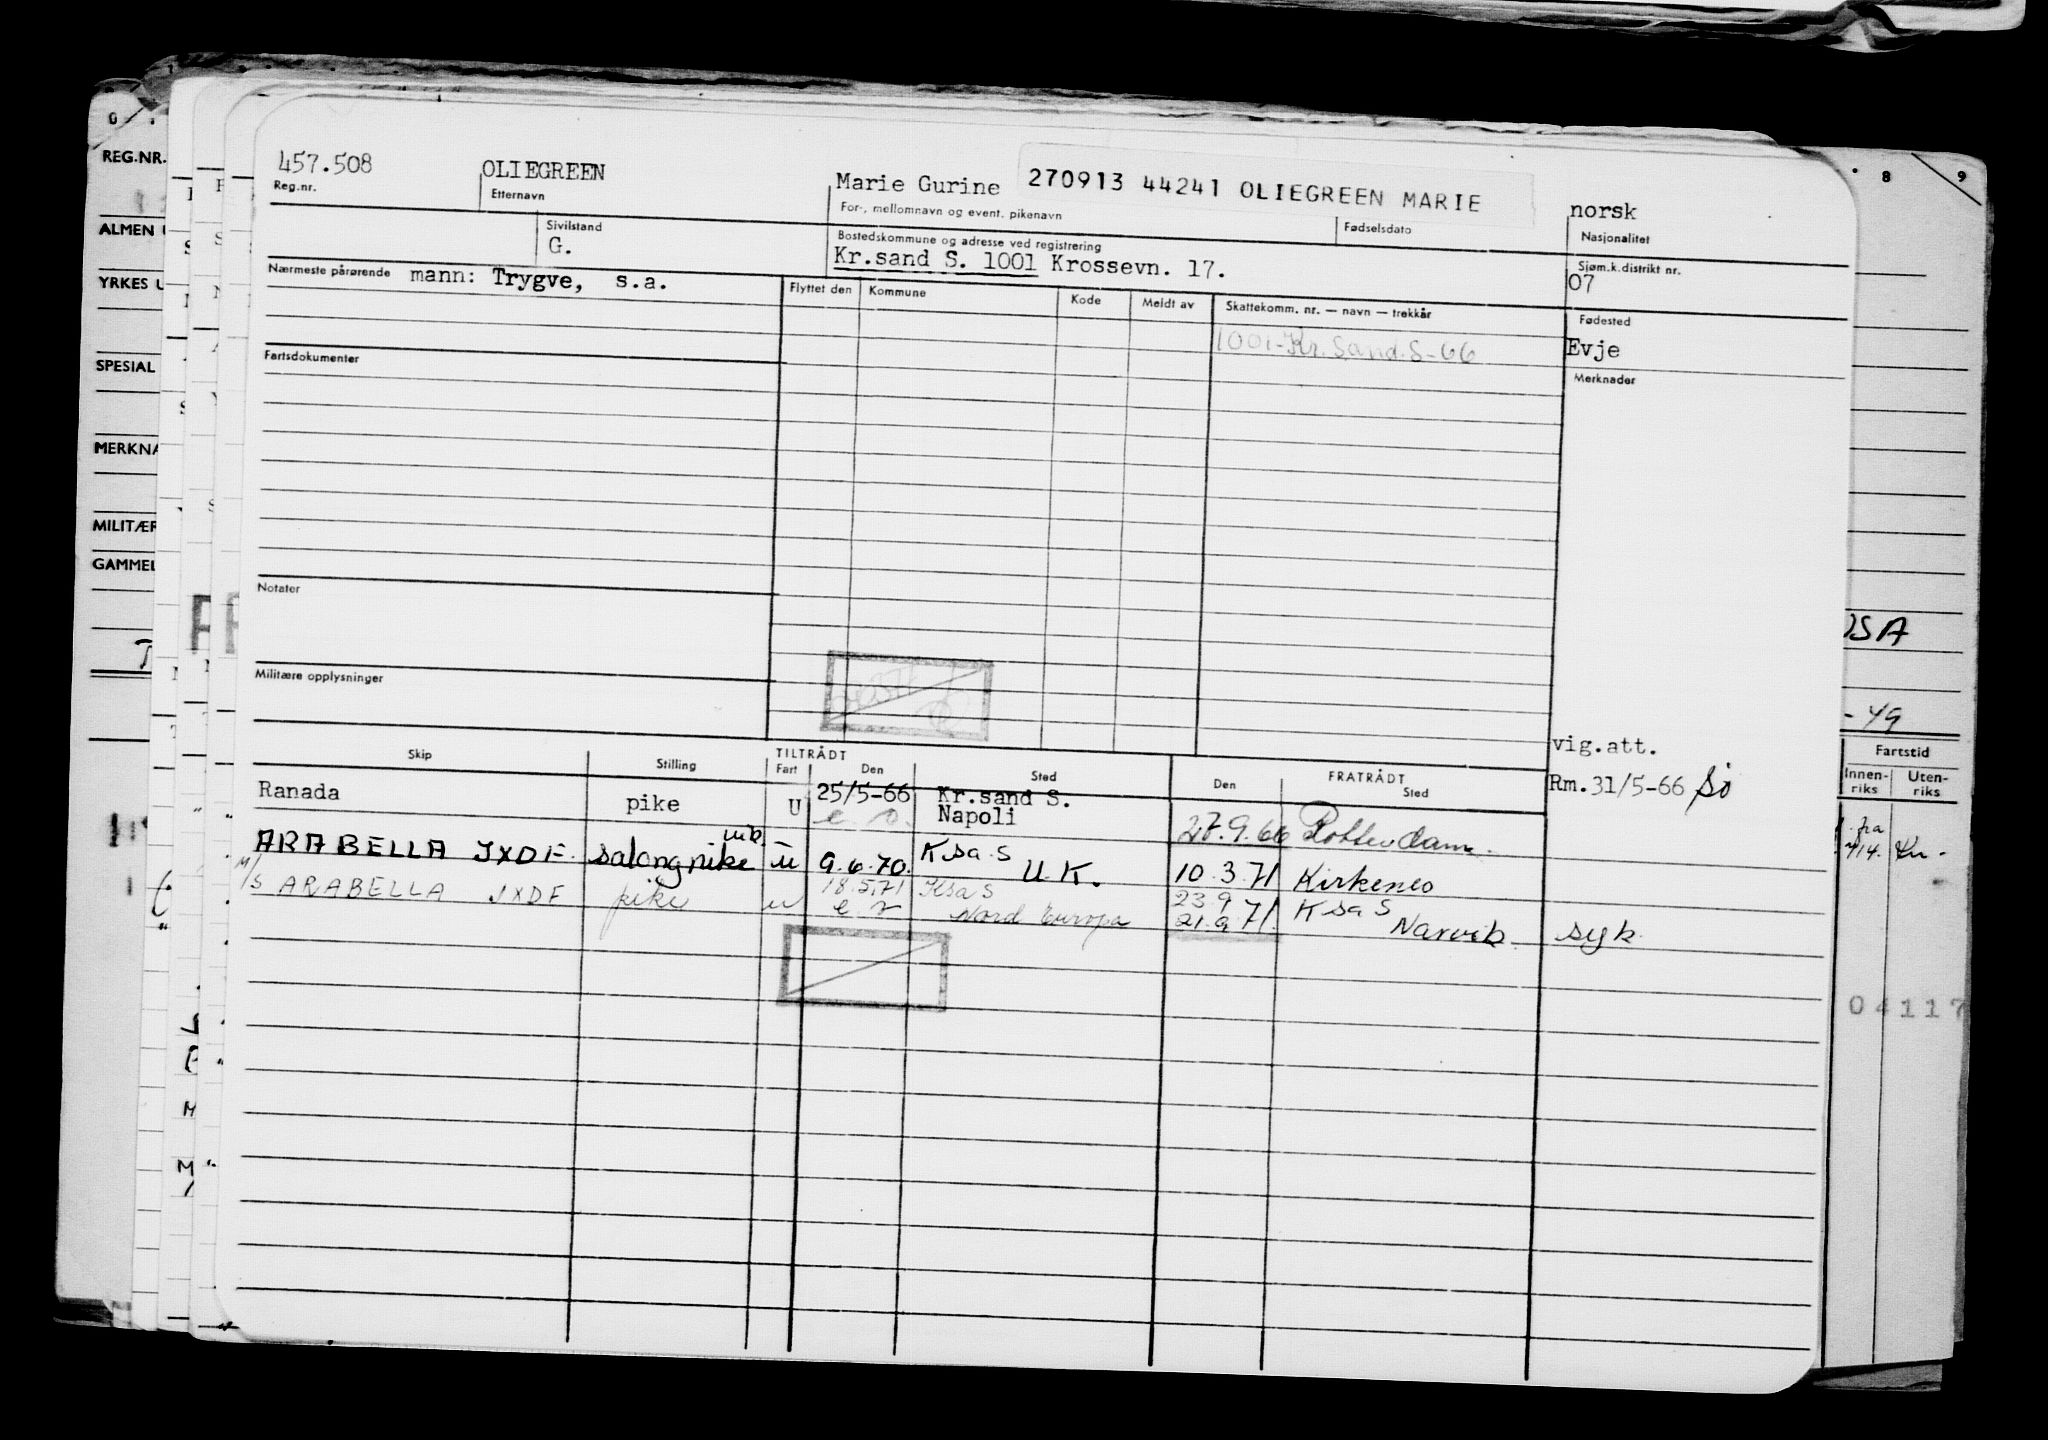 457.508 OLIEGREEN Marie Gurine 270913 44241 OLIEGREEN MARIE norsk
Reg.nr. Etternavn For-, mellomnavn og event. pikenavn Fødselsdato Nasjonalitet
Sivilstand Bostedskommune og adresse ved registrering Sjøm.k.distrikt nr.
G. Kr.sand S. 1001 Krossevn. 17. 07
Nærmeste pårørende mann: Trygve, s.a. Flyttet den Kommune Kode Meldt av Skattekomm. nr. — navn — trekkår Fødested
1001-Kr.sand.S-66 Evje
Fartsdokumenter Merknader
Notater
Militære opplysninger
vig.att.
Skip Stilling TILTRÅDT FRATRÅDT
Fart Den Sted Den Sted
Ranada pike U 25/5-66 Kr.sand S. Rm. 31/5-66
Napoli 27.9.66 Rotterdam.
ARABELLA JXDF. salongpike vik. u 9.6.70. Ksa.S U.K. 10.3.71 Kirkenes
M/S ARABELLA JXDF pike u 18.5.71 Ksa S 23.9 Ksa S
Nord Europa 21.9.71. Narvik. syk.
REG.NR.
ALMEN
YRKES
SPESIAL
MERKNA
MILITÆR
GAMMEL
8 9
OSA
-49
Fartstid
Innen-riks Uten-riks
04117